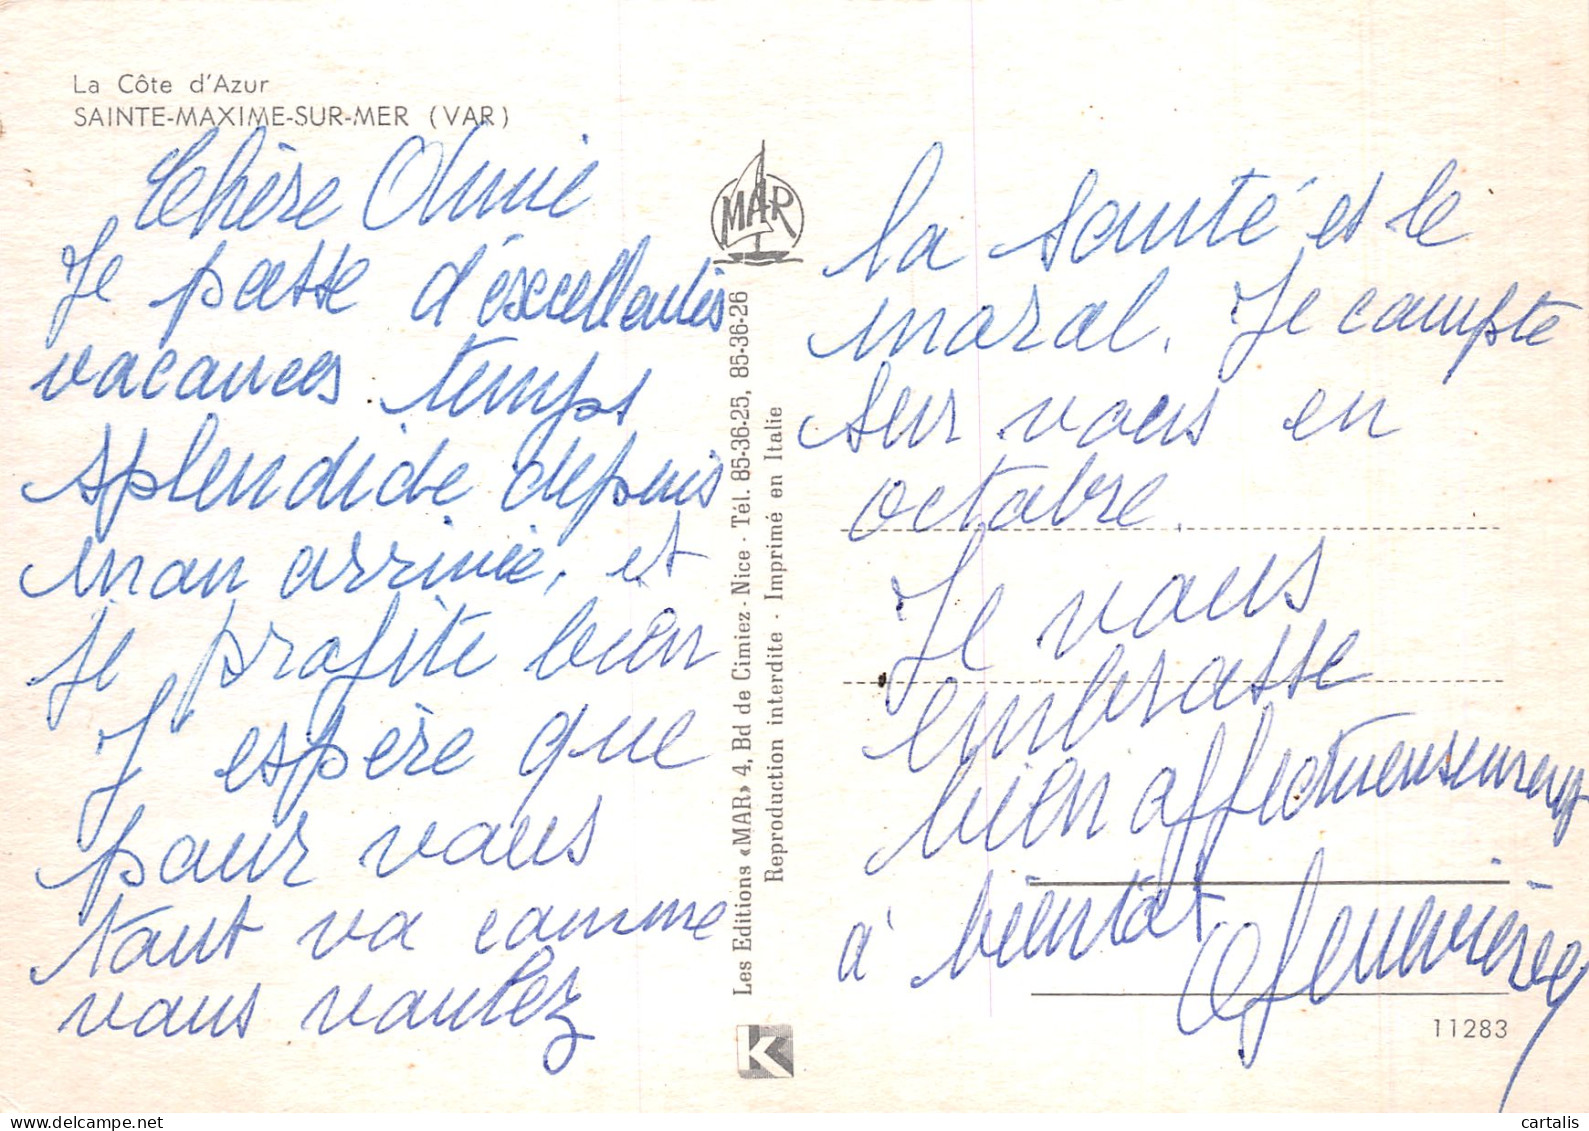 La Côte d'Azur
SAINTE-MAXIME-SUR-MER (VAR)
Chère Amie
Je passe d'excellentes
vacances temps
splendide depuis
mon arrivée, et
je profite bien
J espère que
pour vous
tout va comme
vous voulez
la santé et le
moral. Je compte
sur vous en
octobre.
Je vous
embrasse
bien affectueusement
à bientôt
Geneviève
MAR
Les Editions «MAR» 4, Bd de Cimiez - Nice - Tél. 85-36-25, 85-36-26
Reproduction interdite - Imprimé en Italie
K
11283
cartalis